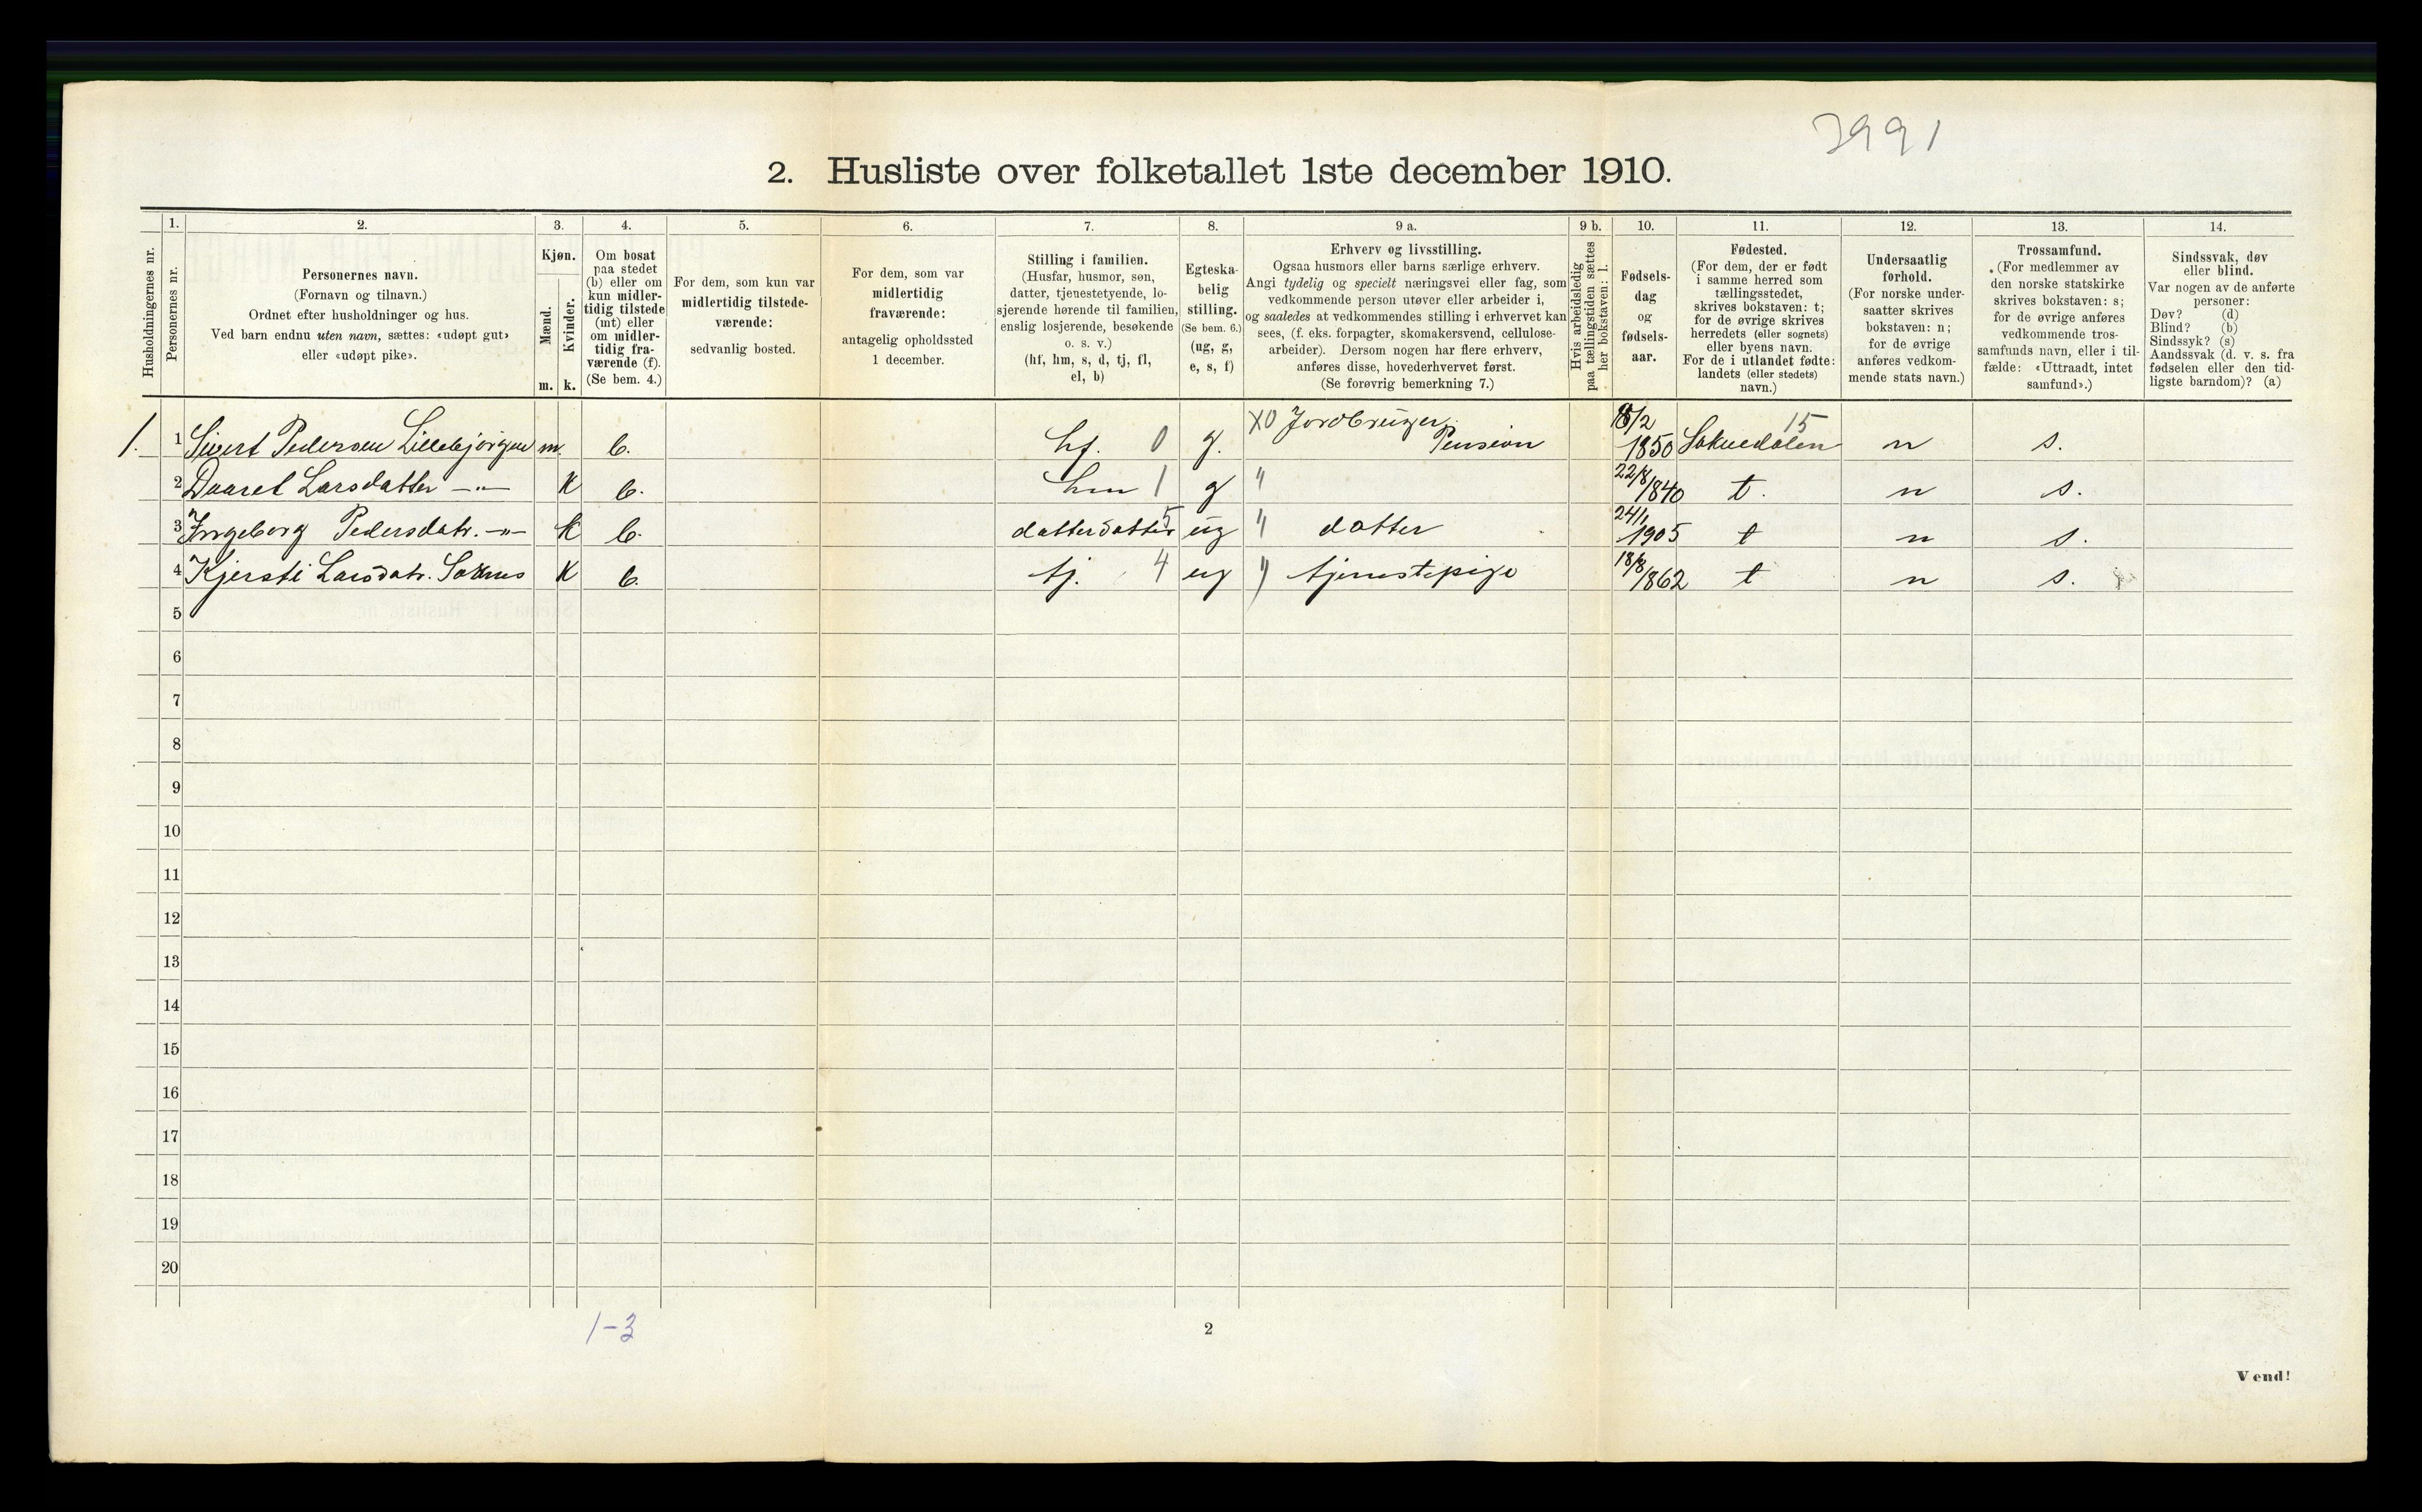 3991
2. Husliste over folketallet 1ste december 1910.
Husholdningernes nr.
1.
Personernes nr.
2.
Personernes navn.
(Fornavn og tilnavn.)
Ordnet efter husholdninger og hus.
Ved barn endnu uten navn, sættes: «udøpt gut»
eller «udøpt pike».
3.
Kjøn.
Mænd.
Kvinder.
m. k.
4.
Om bosat
paa stedet
(b) eller om
kun midler-
tidig tilstede
(mt) eller
om midler-
tidig fra-
værende (f).
(Se bem. 4.)
5.
For dem, som kun var
midlertidig tilstede-
værende:
sedvanlig bosted.
6.
For dem, som var
midlertidig
fraværende:
antagelig opholdssted
1 december.
7.
Stilling i familien.
(Husfar, husmor, søn,
datter, tjenestetyende, lo-
sjerende hørende til familien,
enslig losjerende, besøkende
o. s. v.)
(hf, hm, s, d, tj, fl,
el, b)
8.
Egteska-
belig
stilling.
(Se bem. 6.)
(ug, g,
e, s, f)
9 a.
Erhverv og livsstilling.
Ogsaa husmors eller barns særlige erhverv.
Angi tydelig og specielt næringsvei eller fag, som
vedkommende person utøver eller arbeider i,
og saaledes at vedkommendes stilling i erhvervet kan
sees, (f. eks. forpagter, skomakersvend, cellulose-
arbeider). Dersom nogen har flere erhverv,
anføres disse, hovederhvervet først.
(Se forøvrig bemerkning 7.)
9 b.
Hvis arbeidsledig
paa tællingstiden sættes
her bokstaven: l.
10.
Fødsels-
dag
og
fødsels-
aar.
11.
Fødested.
(For dem, der er født
i samme herred som
tællingsstedet,
skrives bokstaven: t;
for de øvrige skrives
herredets (eller sognets)
eller byens navn.
For de i utlandet fødte:
landets (eller stedets)
navn.)
12.
Undersaatlig
forhold.
(For norske under-
saatter skrives
bokstaven: n;
for de øvrige
anføres vedkom-
mende stats navn.)
13.
Trossamfund.
(For medlemmer av
den norske statskirke
skrives bokstaven: s;
for de øvrige anføres
vedkommende tros-
samfunds navn, eller i til-
fælde: «Uttraadt, intet
samfund».)
14.
Sindssvak, døv
eller blind.
Var nogen av de anførte
personer:
Døv? (d)
Blind? (b)
Sindssyk? (s)
Aandssvak (d. v. s. fra
fødselen eller den tid-
ligste barndom)? (a)
1. 1 Sivert Pedersen Lillebjørgen m. b. hf. 0 g. X0 Jordbruger Pension /2 1850 15 n s.
2 Daaret Larsdatter -"- k b. hm 1 g " 22/8 1840 t. n s.
3 Ingeborg Pedersdatr. -"- k b. datterdatter 5 ug " datter 24/1 1905 t n s.
4 Kjersti Larsdatr. k b. tj. 4 ug " tjenestepige 18/8 1862 t n s.
5
6
7
8
9
10
11
12
13
14
15
16
17
18
19
20
1-3
2
Vend!